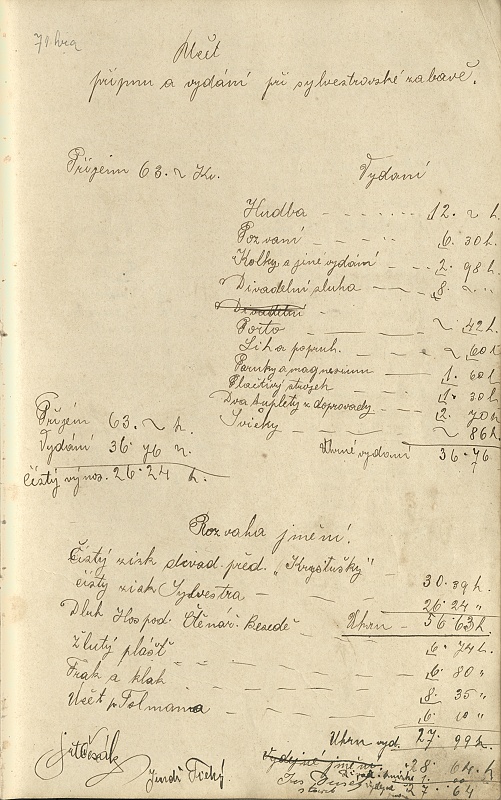 71 hra
Účet
příjmu a vydání při sylvestrovské zábavě.
Příjem 63. ~ Kr.
Vydání
Hudba 12. ~ h.
Pozvání 6. 30 h.
Kolky a jiné vydání 2. 98 h.
Divadelní sluha 8. ~
Divadelní
Porto ~ 42 h.
Líh a popruh. ~ 60 h.
Paruky a magnesium 1. 60 h.
Plačtivý strojek 1. 30 h.
Dva kuplety z doprovody 2. 70 h.
Svíčky ~ 86 h.
Úhrné vydání 36. 76
Příjem 63. ~ h.
Vydání 36. 76 h.
Čistý výnos. 26. 24 h.
Rozvaha jmění.
Čistý zisk divad. před. „Krystušky" 30. 39 h.
čistý zisk Sylvestra 26. 24 "
Úhrn 56 63 h.
Dluh Hospod. Čtenář. Besedě 6. 74 h.
Žlutý plášť 6. 80 "
Frak a klak 8. 35 "
Účet p. 6. 10 "
Úhrn vyd. 27. 99 h.
Výdejné jmění. 28. 64. h.
27. 64
Jindř. Tichý.